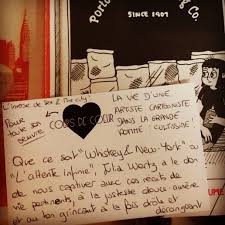 SINCE 1907
L'inverse de Sex & the city
Pour toute son oeuvre
COUPS DE COEUR
LA VIE D'UNE
ARTISTE CARTOONISTE
DANS LA GRANDE
POMME "CULTISSIME"
Que ce soit "Whiskey & New-York" ou
"L'attente infinie", Julia Wertz a le don
de nous captiver avec ces récits de
vie pertinents, à la justesse douce-amère
et au ton grinçant à la fois drôle et
dérangeant